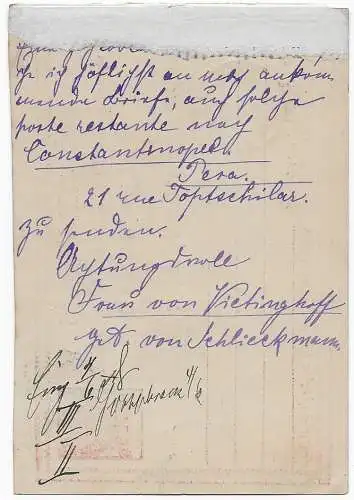 ge ich höflichst an noch ankom
mende Briefe, auch solche
poste restante nach
Constantinopel.
Pera.
21 rue Toptschilar.
zu senden.
Achtungsvoll
Frau von Vietinghoff
geb. von Schlieckmann.